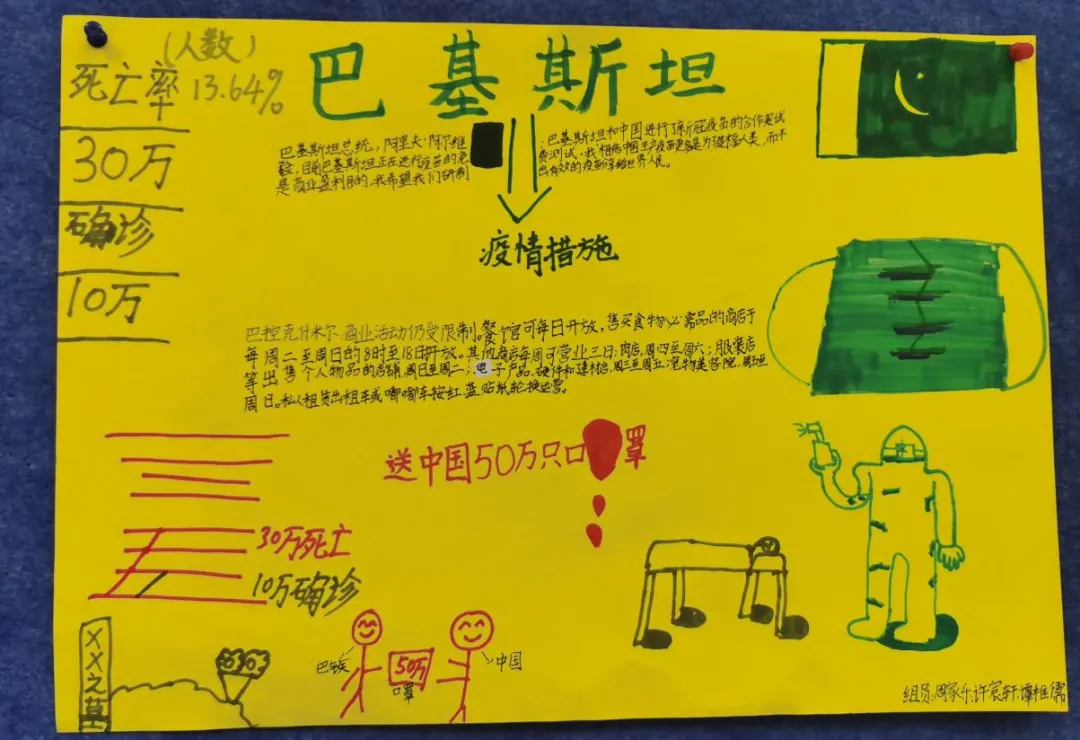 (人数)
死亡率 13.64%
30万
确诊
10万
巴基斯坦
巴基斯坦总统，阿里夫·阿尔维
目前巴基斯坦正在进行疫苗的免
是商业盈利目的，我希望我们研制
巴基斯坦和中国进行了新冠疫苗的合作
费测试，我相信中国生产疫苗更多是为造福人类，而不
出有效的疫苗 世界人民。
疫情措施
巴控克什米尔商业活动仍受限制。餐馆可每日开放，售买食物必需品的商店于
每周二至周日的8时至18时开放。其他商店每周可营业三日：肉店，周四至周六；服装店
等出售个人物品的店铺，周日至周二；电子产品、硬件和建材店，周三至周五；宠物美容院，周五至
周日。私人租赁出租车或嘟嘟车按红、蓝贴纸轮换运营。
送中国50万只口罩
30万死亡
10万确诊
XX之墓
巴铁
50万
口罩
中国
组员：周家乐、许宸轩、谭